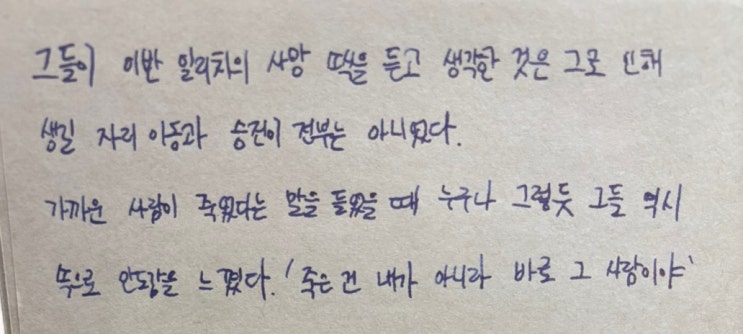 그들이 이반 일리치의 사망 소식을 듣고 생각한 것은 그로 인해
생길 자리 이동과 승진이 전부는 아니었다.
가까운 사람이 죽었다는 말을 들었을 때 누구나 그렇듯 그들 역시
속으로 안도감을 느꼈다. '죽은 건 내가 아니라 바로 그 사람이야'